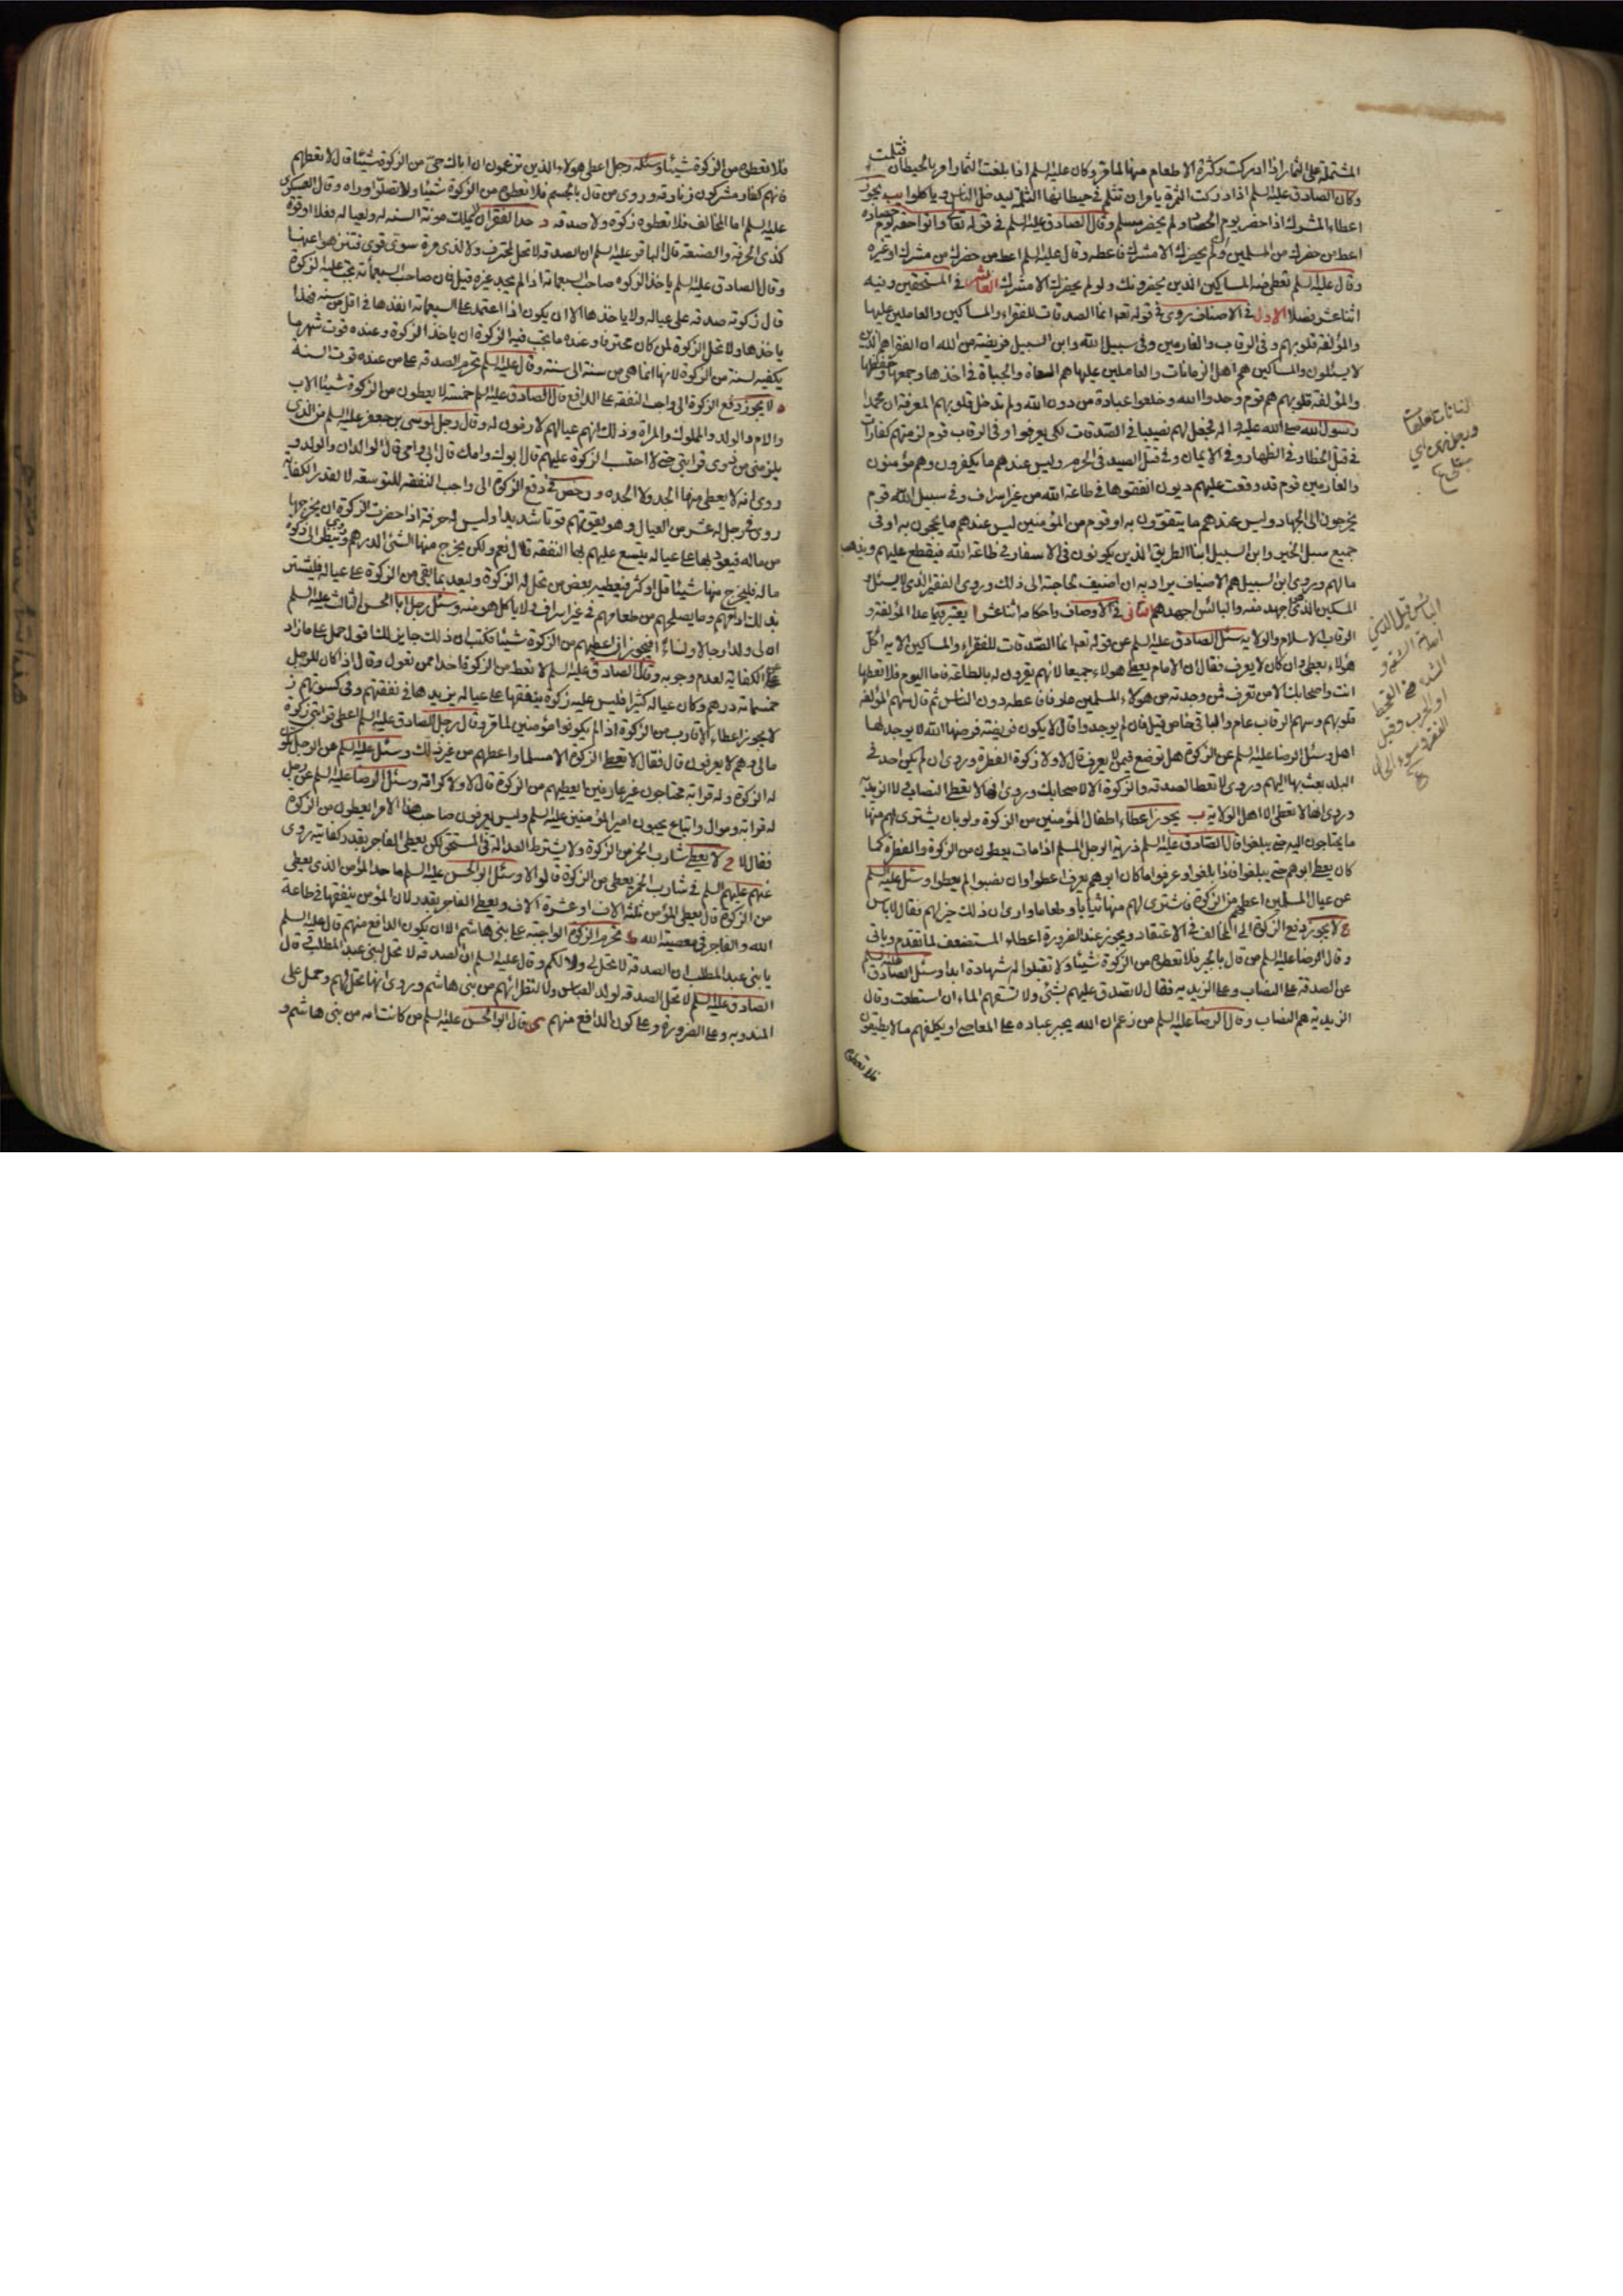 المشتملة على الثمار اذا ادركت وكثرة الاطعام منها لما مر وكان عليه السلم اذا بلغت الثمار امر بالحيطان فثلمت
وكان الصادق عليه السلم اذا ادركت الثمرة يامر ان تثلم في حيطانها الثلم ليدخل الناس و ياكلوا يب يجوز
اعطاء المشرك اذا حضر يوم الحصاد ولم يحضر مسلم وقال الصادق عليه السلم في قوله تعا واتوا حقه يوم حصاده
اعط من حضرك من المسلمين ولم يحضرك الا مشرك فاعطه وقال عليه السلم اعط من حضرك من مشرك او غيره
وقال عليه السلم تعطي منه المساكين الذين يحضرونك ولو لم يحضرك الا مشرك العاشر في المستحقين وفيه
اثنا عشر فصلا الاول في الاصناف روي في قوله تعا انما الصدقات للفقراء والمساكين والعاملين عليها
والمؤلفة قلوبهم وفي الرقاب والغارمين وفي سبيل الله وابن السبيل فريضة من الله ان الفقرا هم الذين
لا يسئلون والمساكين هم اهل الزمانات والعاملين عليها هم السعاة والجباة في اخذها وجمعها وحفظها
والمؤلفة قلوبهم هم قوم وحدوا الله وخلعوا عبادة من دون الله ولم تدخل قلوبهم المعرفة ان محمدا
رسول الله صلى الله عليه واله فجعل لهم نصيبا في الصدقات لكي يعرفوا وفي الرقاب قوم لزمتهم كفارات
في قتل الخطاء وفي الظهار وفي الايمان وفي قتل الصيد في الحرم وليس عندهم ما يكفرون وهم مؤمنون
والغارمين قوم قد وقعت عليهم ديون انفقوها في طاعة الله من غير اسراف وفي سبيل الله قوم
يخرجون الى الجهاد وليس عندهم ما يتقوون به او قوم من المؤمنين ليس عندهم ما يحجون به او في
جميع سبل الخير وابن السبيل ابنا الطريق الذين يكونون في الاسفار في طاعة الله فيقطع عليهم ويذهب
مالهم وروي ابن السبيل هم الاضياف يراد به ان اضيف لحاجته الى ذلك وروي الفقير الذي لا يسئل و
المسكين الذي اجهد منه والبائس اجهدهم الثاني في الاوصاف واحكامه اثنا عشر ا يعتبر فيما عدا المؤلفة و
الرقاب الاسلام والولاية سئل الصادق عليه السلم عن قوله تعا انما الصدقات للفقراء والمساكين الاية اكل
هؤلاء يعطى وان كان لا يعرف فقال ان الامام يعطي هولاء جميعا لانهم يقرون له بالطاعة فاما اليوم فلا تعطها
انت واصحابك الا من تعرف فمن وجدته من هولاء المسلمين عارفا فاعطه دون الناس ثم قال سهم المؤلفة
قلوبهم وسهم الرقاب عام والباقي خاص قيل فان لم يوجدوا قال لا يكون فريضة فرضها الله لا يوجد لها
اهل وسئل الرضا عليه السلم عن الزكوة هل توضع فيمن لا يعرف قال لا ولا زكوة الفطرة وروي ان لم يكن احد في
البلد بعث بها اليهم وروي لا تعط الصدقة والزكوة الا لاصحابك وروي انها لا يعطى النصاب ولا الزيدية
وروي انها لا تعطى الا اهل الولاية ب يجوز اعطاء اطفال المؤمنين من الزكوة ولو بان يشترى لهم منها
ما يحتاجون اليه حتى يبلغوا قال الصادق عليه السلم ذرية الرجل المسلم اذا مات يعطون من الزكوة والفطرة كما
كان يعطى ابوهم حتى يبلغوا فاذا بلغوا وعرفوا ما كان ابوهم يعرف اعطوا وان نصبوا لم يعطوا وسئل عليه السلم
عن عيال المسلمين اعطيهم من الزكوة فاشترى لهم منها ثيابا وطعاما وارى ان ذلك خير لهم فقال لا باس
ج لا يجوز دفع الزكوة الى المخالف في الاعتقاد ويجوز عند الضرورة اعطاء المستضعف لما تقدم وياتي
وقال الرضا عليه السلم من قال بالجبر فلا تعطوه من الزكوة شيئا ولا تقبلوا له شهادة ابدا وسئل الصادق عليه السلم
عن الصدقة على النصاب وعلى الزيدية فقال لا تصدق عليهم بشئ ولا تسقهم الماء ان استطعت وقال
الزيدية هم النصاب وقال الرضا عليه السلم من زعم ان الله يجبر عباده على المعاصي او يكلفهم ما لا يطيقون
فلا تعطوه
البائس قيل الذي
فلا تعطوه من الزكوة شيئا وسئله رجل اعطي هولاء الذين تزعمون ان اباك حي من الزكوة شيئا قال لا تعطهم
فانهم كفار مشركون زنادقة وروي من قال بالجسم فلا تعطوه من الزكوة شيئا ولا تصلوا وراه وقال العسكري
عليه السلم اما المخالف فلا تعطوه زكوة ولا صدقة د حد الفقر ان لا يملك مونة السنة له ولعياله فعلا او قوة
كذي الحرفة والصنعة قال الباقر عليه السلم ان الصدقة لا تحل لمحترف ولا لذي مرة سوي قوي فتنزهوا عنها
وقال الصادق عليه السلم ياخذ الزكوة صاحب السبعمائة اذا لم يجد غيره قيل فان صاحب السبعمأة تجب عليه الزكوة
قال زكوته صدقة على عياله ولا ياخذها الا ان يكون اذا اعتمد على السبعمائة انفدها في اقل من سنة فهذا
ياخذها ولا تحل الزكوة لمن كان محترفا وعنده ما تجب فيه الزكوة ان ياخذ الزكوة وعنده قوت شهر ما
يكفيه لسنة من الزكوة لانها انما هي من سنة الى سنة وقال عليه السلم تحرم الصدقة على من عنده قوت السنة
ه لا يجوز دفع الزكوة الى واجب النفقة على الدافع قال الصادق عليه السلم خمسة لا يعطون من الزكوة شيئا الاب
والام والولد والمملوك والمراة وذلك انهم عياله لازمون له وقال رجل لموسى بن جعفر عليه السلم من الذي
يلزمني من ذوي قرابتي حتى لا احتسب الزكوة عليهم قال ابوك وامك قال ابي وامي قال الوالدان والولد و
روي انه لا يعطى منها الجد ولا الجدة و رخص في دفع الزكوة الى واجب النفقة للتوسعة لا لقدر الكفاية
روي في رجل له عشر من العيال وهو يقوتهم قوتا شديدا وليس له حرفة اذا حضرت الزكوة ان يخرجها
من ماله فيعود بها على عياله يتسع عليهم بها النفقة قال نعم ولكن يخرج منها الشئ الدرهم وينظر الى زكوة
ماله فليخرج منها شيئا قل او كثر فيعطيه بعض من تحل له الزكوة وليعد بما بقي من الزكوة على عياله فليشتر
بذلك ادامهم وما يصلحهم من طعامهم في غير اسراف ولا ياكل هو منه وسئل رجل ابا الحسن الثالث عليه السلم
ان لي ولدا رجالا ونساء افيجوز ان اعطيهم من الزكوة شيئا فكتب ان ذلك جايز لك اقول حمل على ما زاد
على الكفاية لعدم وجوبه وقال الصادق عليه السلم لا تعط من الزكوة احدا ممن تعول وقال اذا كان للرجل
خمسمائة درهم وكان عياله كثيرا فليس عليه زكوة ينفقها على عياله يزيدها في نفقتهم وفي كسوتهم ز
لا يجوز اعطاء الاقارب من الزكوة اذا لم يكونوا مؤمنين لما مر وقال رجل للصادق عليه السلم اعطي قرابتي زكوة
مالي وهم لا يعرفون قال فقال لا تعط الزكوة الا مسلما واعطهم من غير ذلك وسئل عليه السلم عن الرجل يكون
له الزكوة وله قرابة محتاجون غير عارفين ايعطيهم من الزكوة قال لا ولا كرامة وسئل الرضا عليه السلم عن رجل
له قرابة وموال واتباع يحبون امير المؤمنين عليه السلم وليس يعرفون صاحب هذا الامر ايعطون من الزكوة
فقال لا ح لا يعطى شارب الخمر من الزكوة ولا يشترط العدالة في المستحق لكن يعطى الفاجر بقدر كفايته روي
عنهم عليهم السلم في شارب الخمر يعطى من الزكوة قالوا لا وسئل ابو الحسن عليه السلم ما حد المؤمن الذي يعطى
من الزكوة قال يعطى المؤمن ثلثة الاف او عشرة الاف ويعطى الفاجر بقدر لان المؤمن ينفقها في طاعة
الله والفاجر في معصية الله ط تحرم الزكوة الواجبة على بني هاشم الا ان يكون الدافع منهم قال عليه السلم
يا بني عبد المطلب ان الصدقة لا تحل لي ولا لكم وقال عليه السلم ان الصدقة لا تحل لبني عبد المطلب قال
الصادق عليه السلم لا تحل الصدقة لولد العباس ولا لنظرائهم من بني هاشم وروي انها تحل لهم وحمل على
المندوبة وعلى الضرورة وعلى كون الدافع منهم ي قال ابو الحسن عليه السلم من كانت امه من بني هاشم و